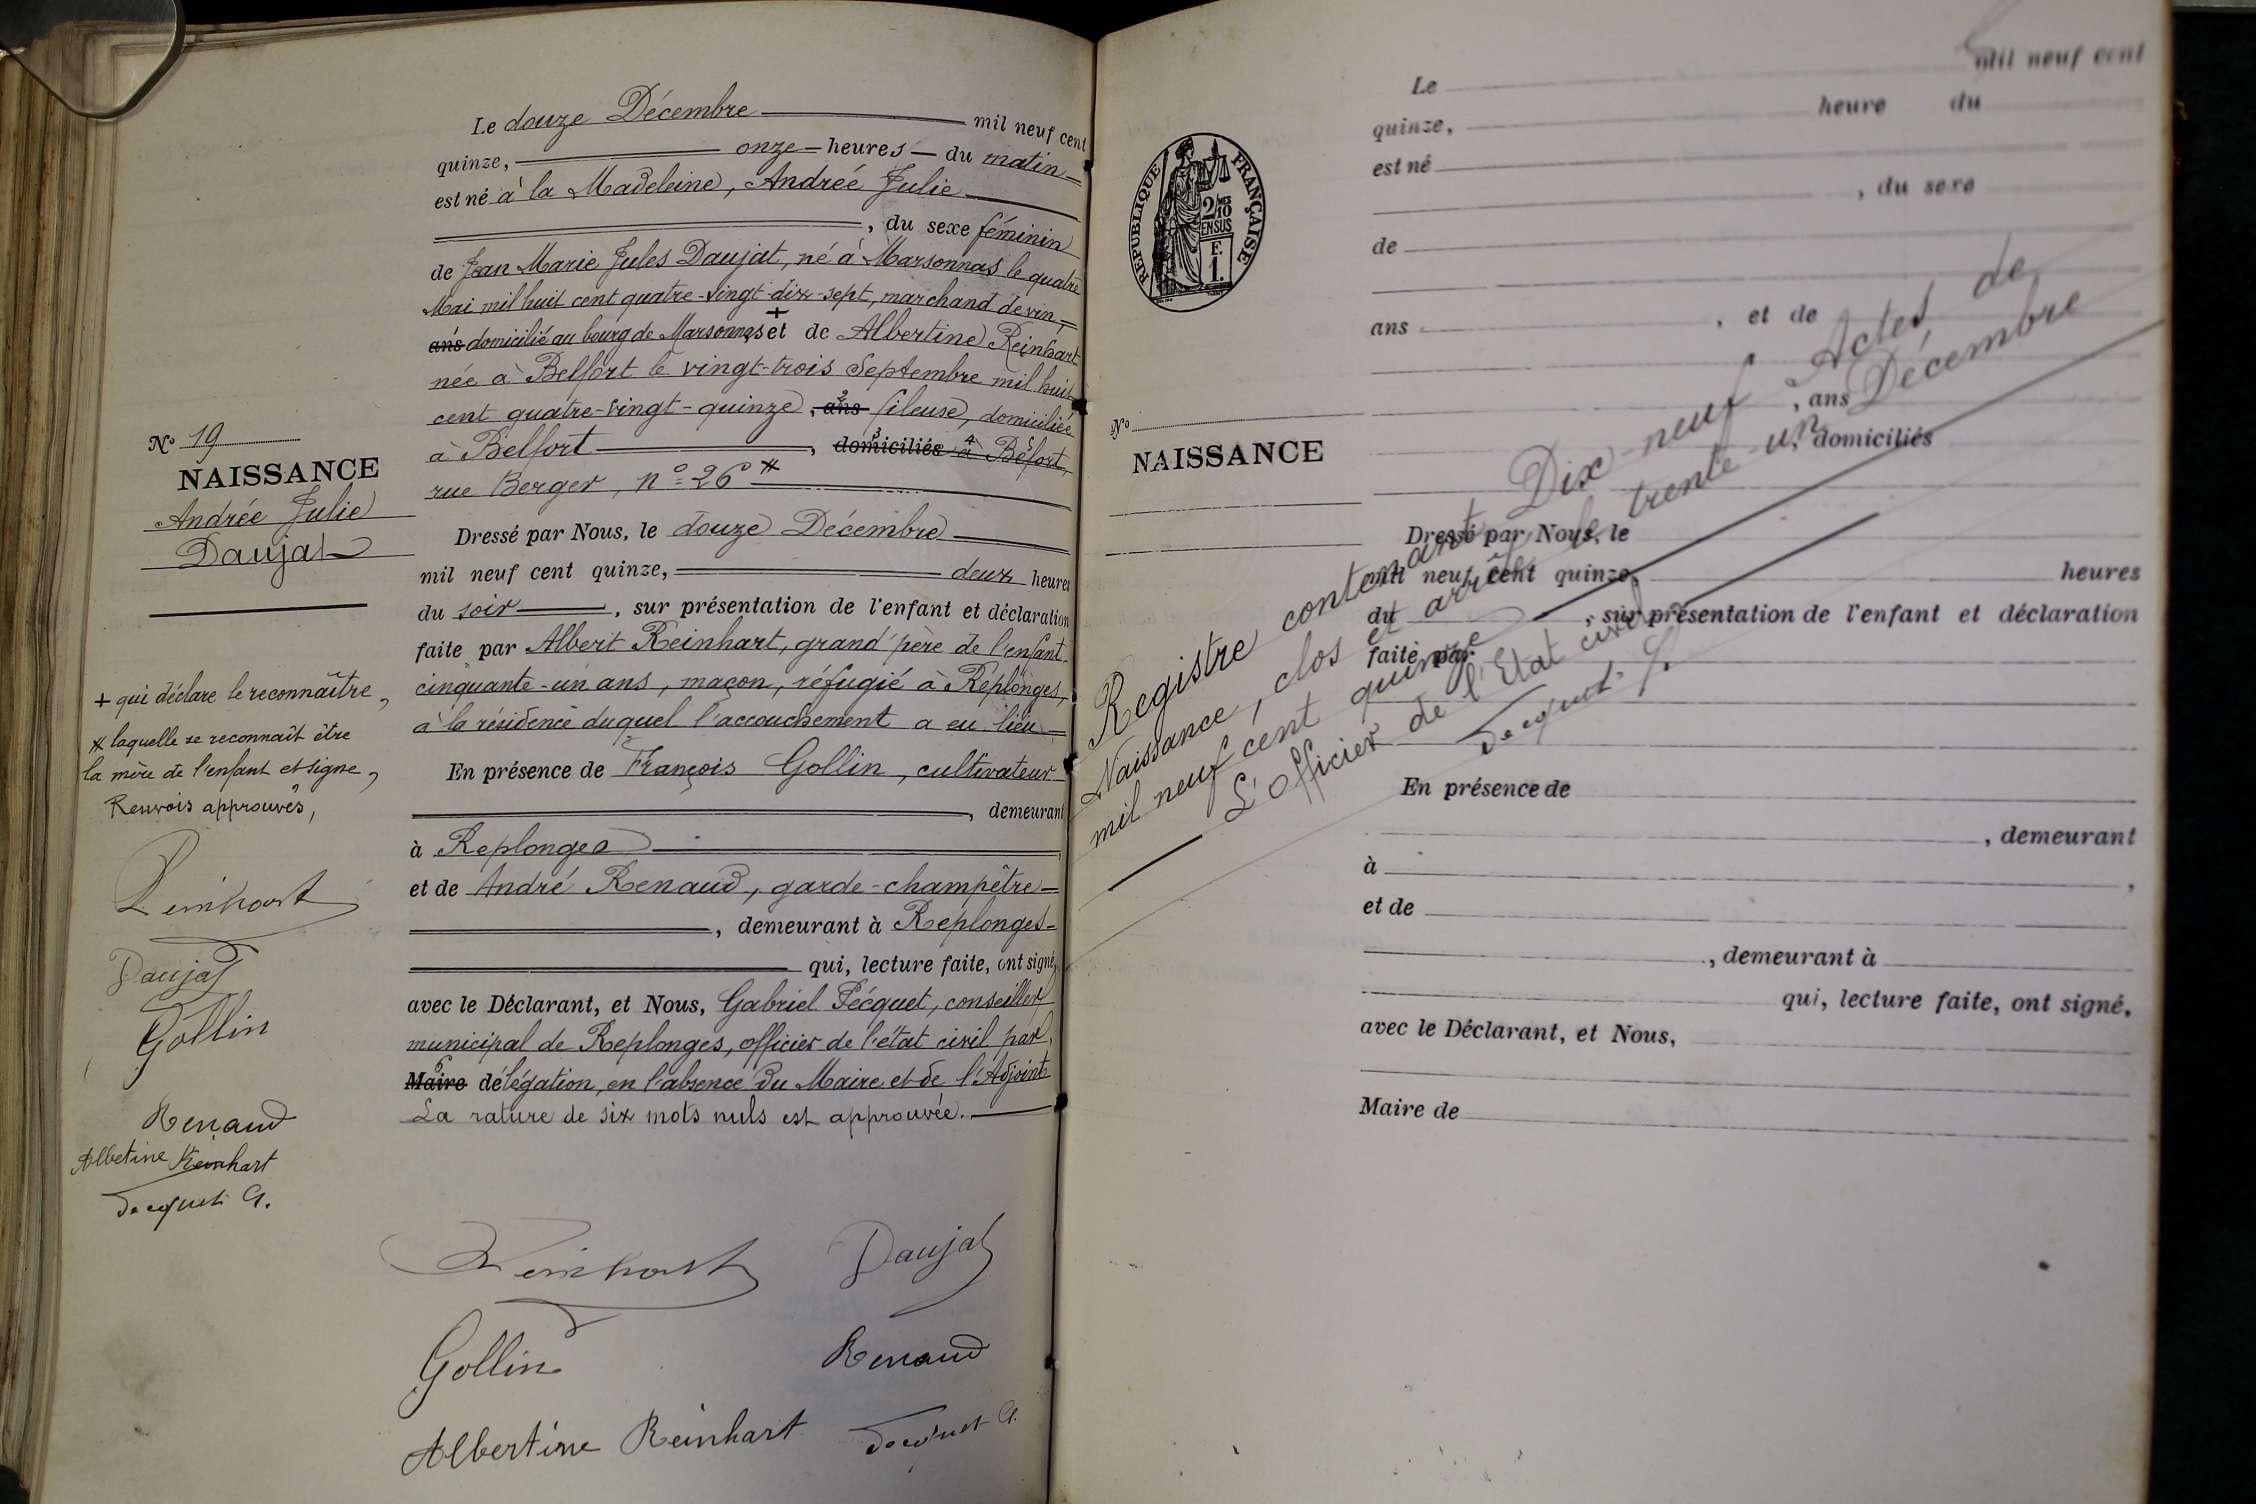 Le douze Décembre mil neuf cent
quinze, onze heures du matin
est né à la Madeleine, Andrée Julie
, du sexe féminin
de Jean Marie Jules Daujat, né à Marsonnas le quatre
Mai mil huit cent quatre-vingt-dix-sept, marchand de vin,
+
ans domicilié au bourg de Marsonnas et de Albertine Reinhart
née à Belfort le vingt-trois Septembre mil huit
cent quatre-vingt-quinze, ans fileuse, domiciliée
à Belfort, domiciliés à Belfort,
rue Berger, n° 26 #
Dressé par Nous, le douze Décembre
mil neuf cent quinze, deux heures
du soir, sur présentation de l'enfant et déclaration
faite par Albert Reinhart, grand'père de l'enfant
cinquante-un ans, maçon, réfugié à Replonges,
à la résidence duquel l'accouchement a eu lieu
En présence de François Gollin, cultivateur
, demeurant
à Replonges
et de André Renaud, garde-champêtre
, demeurant à Replonges
qui, lecture faite, ont signé,
avec le Déclarant, et Nous, Gabriel Pécquet, conseiller
municipal de Replonges, officier de l'état civil par
Maire délégation, en l'absence du Maire et de l'Adjoint
La rature de six mots nuls est approuvée.
Reinhart Daujat
Gollin Renaud
Albertine Reinhart Pecquet G.
N° 19
NAISSANCE
Andrée Julie
Daujat
+ qui déclare le reconnaître,
# laquelle se reconnaît être
la mère de l'enfant et signe,
Renvois approuvés,
Reinhart
Daujat
Gollin
Renaud
Albetine Reinhart
Pecquet G.
RÉPUBLIQUE FRANÇAISE
2/10
EN SUS
F.
1.
N°
NAISSANCE
Le mil neuf cent
quinze, heure du
est né
, du sexe
de
ans , et de
, ans
, domiciliés
Dressé par Nous, le
mil neuf cent quinze, heures
du , sur présentation de l'enfant et déclaration
faite par
En présence de
, demeurant
à ,
et de
, demeurant à
qui, lecture faite, ont signé,
avec le Déclarant, et Nous,
Maire de
Registre contenant Dix-neuf Actes de
Naissance, clos et arrêté le trente-un Décembre
mil neuf cent quinze
L'officier de l'Etat civil
Pecquet G.